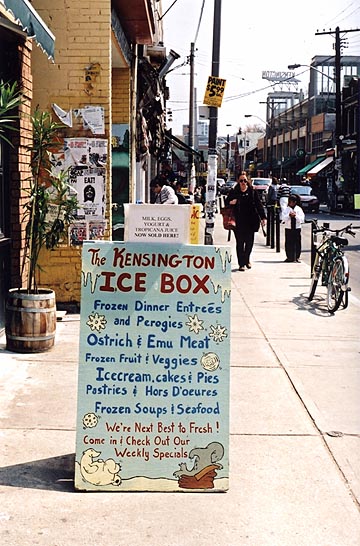 PAINT
$5.99
EAT!
MILK, EGGS,
YOGURT &
TROPICANA JUICE
NOW SOLD HERE!
The KENSINGTON
ICE BOX
Frozen Dinner Entrees
and Perogies
Ostrich & Emu Meat
Frozen Fruit & Veggies
Icecream, cakes & Pies
Pastries & Hors D'oeures
Frozen Soups & Seafood
We're Next Best to Fresh!
Come in & Check Out Our
Weekly Specials